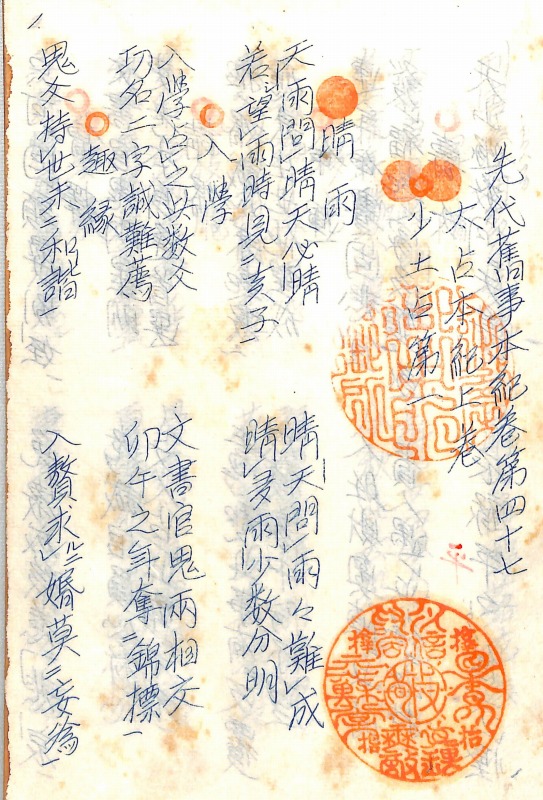 先代舊事本紀卷第四十七
太占本紀上卷
少土占第一
晴雨
天雨問晴天必晴 晴天問雨々難成
若望雨時見支子 晴多雨少数分明
入學
入學占之其数爻 文書官鬼兩相交
功名二字誠難薦 卯午之年奪錦標
趣縁
鬼爻持世未和諧 入贅求婚莫妄為